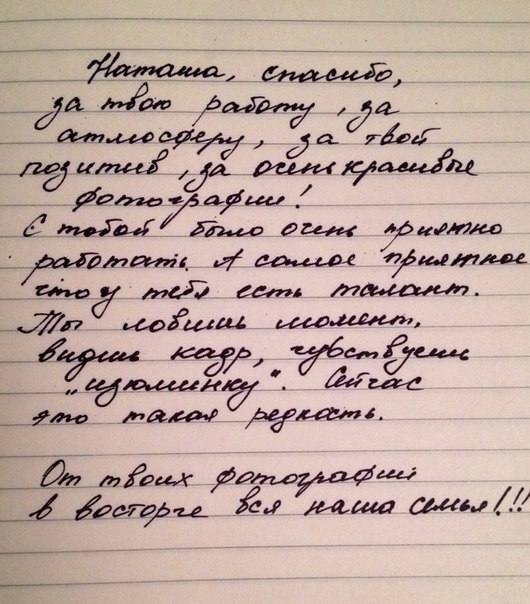 Наташа, спасибо,
за твою работу, за
атмосферу, за твой
позитив, за очень красивые
фотографии!
С тобой было очень приятно
работать. А самое приятное
что у тебя есть талант.
Ты ловишь момент,
видишь кадр, чувствуешь
„изюминку". Сейчас
это такая редкость.
От твоих фотографий
в восторге вся наша семья!!!